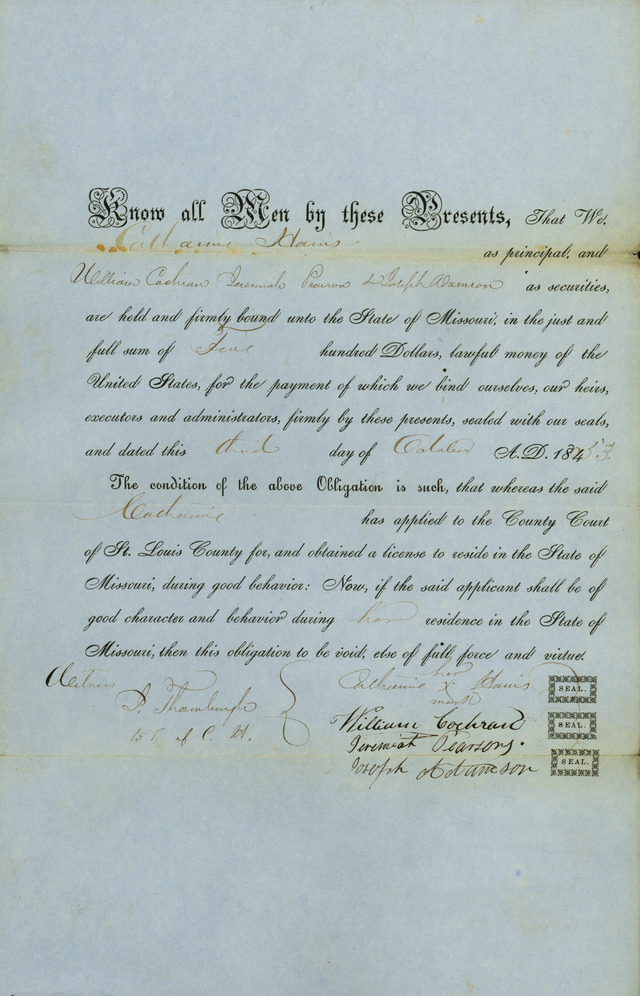 Know all Men by these Presents, That We,
Catharine Haris as principal, and
William Cochran Jeremiah Pearson & Joseph Adamson as securities,
are held and firmly bound unto the State of Missouri, in the just and
full sum of Five hundred Dollars, lawful money of the
United States, for the payment of which we bind ourselves, our heirs,
executors and administrators, firmly by these presents, sealed with our seals,
and dated this third day of October A.D. 1853.
The condition of the above Obligation is such, that whereas the said
Catharine has applied to the County Court
of St. Louis County for, and obtained a license to reside in the State of
Missouri, during good behavior: Now, if the said applicant shall be of
good character and behavior during her residence in the State of
Missouri, then this obligation to be void, else of full force and virtue.
Witness Catharine her X mark Haris SEAL.
Thornburgh William Cochran SEAL.
of C. Jeremiah Pearsons. SEAL.
Joseph Adamson